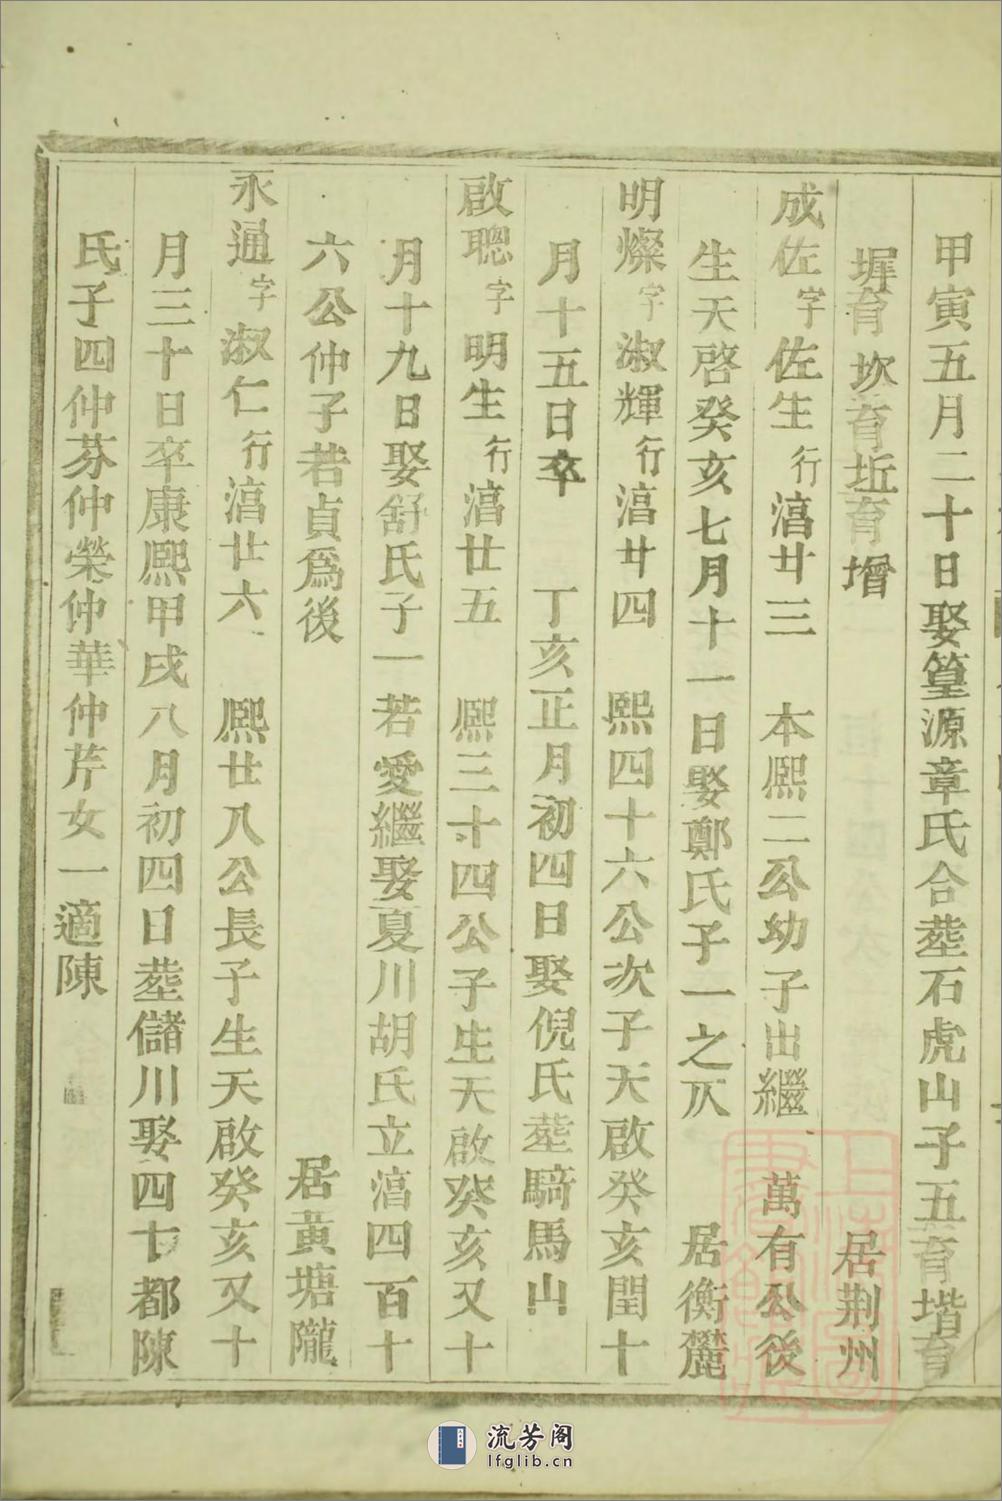 甲寅五月二十日娶篁源章氏合塟石虎山子五育堦育
墀育坎育坵育增 居荆州
成佐字佐生行湻廿三 本熙二公幼子出繼 萬有公後
生天啓癸亥七月十一日娶鄭氏子一之仄 居衡麓
明燦字淑輝行湻廿四 熙四十六公次子天啟癸亥閏十
月十五日卒 丁亥正月初四日娶倪氏塟騎馬山
啟聰字明生行湻廿五 熙三十四公子生天啟癸亥又十
月十九日娶舒氏子一若愛繼娶夏川胡氏立湻四百十
六公仲子若貞爲後 居黃塘隴
永通字淑仁行湻廿六 熙廿八公長子生天啟癸亥又十
月三十日卒康熙甲戌八月初四日塟儲川娶四十都陳
氏子四仲芬仲榮仲華仲芹女一適陳
流芳阁
lfglib.cn